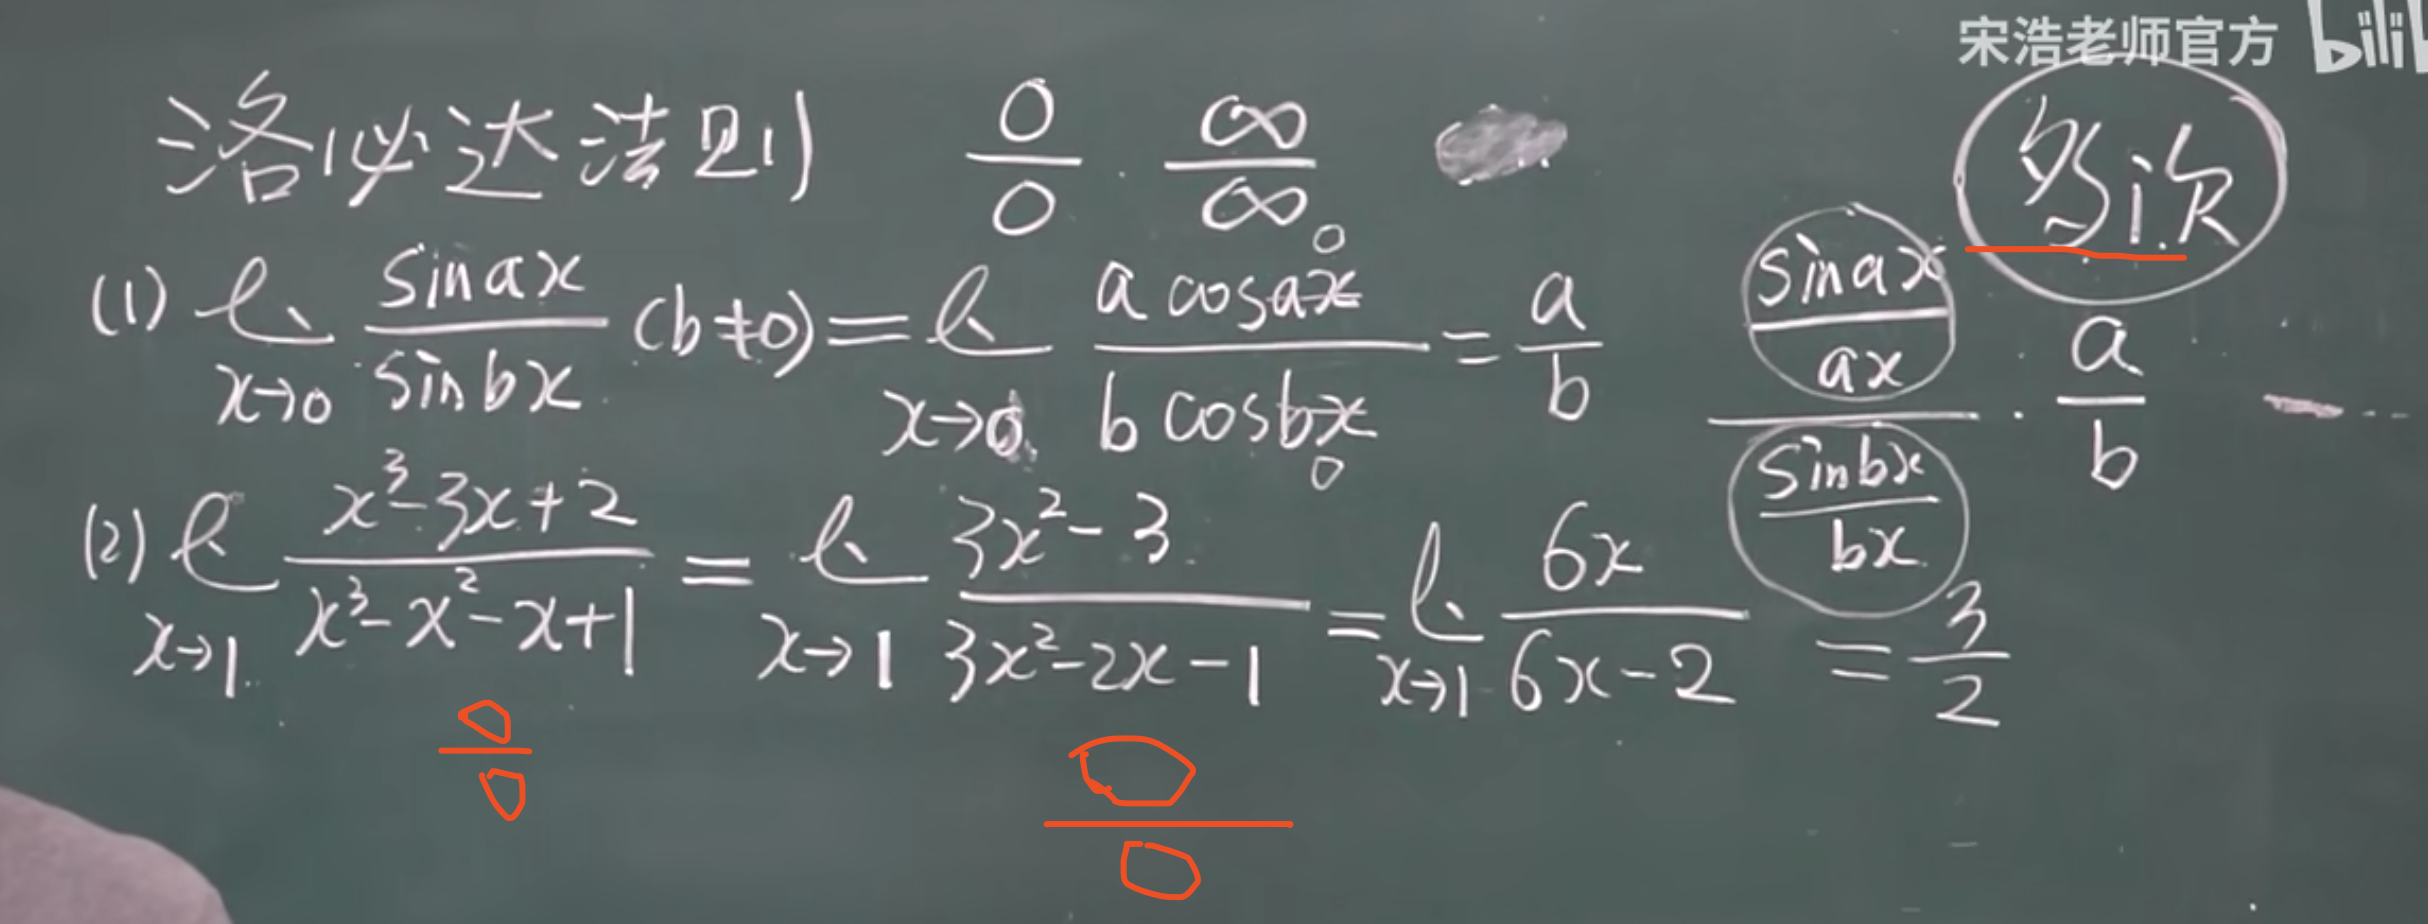 宋浩老师官方 bilib
洛必达法则 0/0 . ∞/∞ 多次
(1) l x→0 sinax/sinbx (b≠0) = l x→0 a cosax/b cosbx = a/b (sinax/ax)/(sinbx/bx) · a/b
(2) l x→1 (x³-3x+2)/(x³-x²-x+1) = l x→1 (3x²-3)/(3x²-2x-1) = l x→1 6x/(6x-2) = 3/2
0/0 0/0